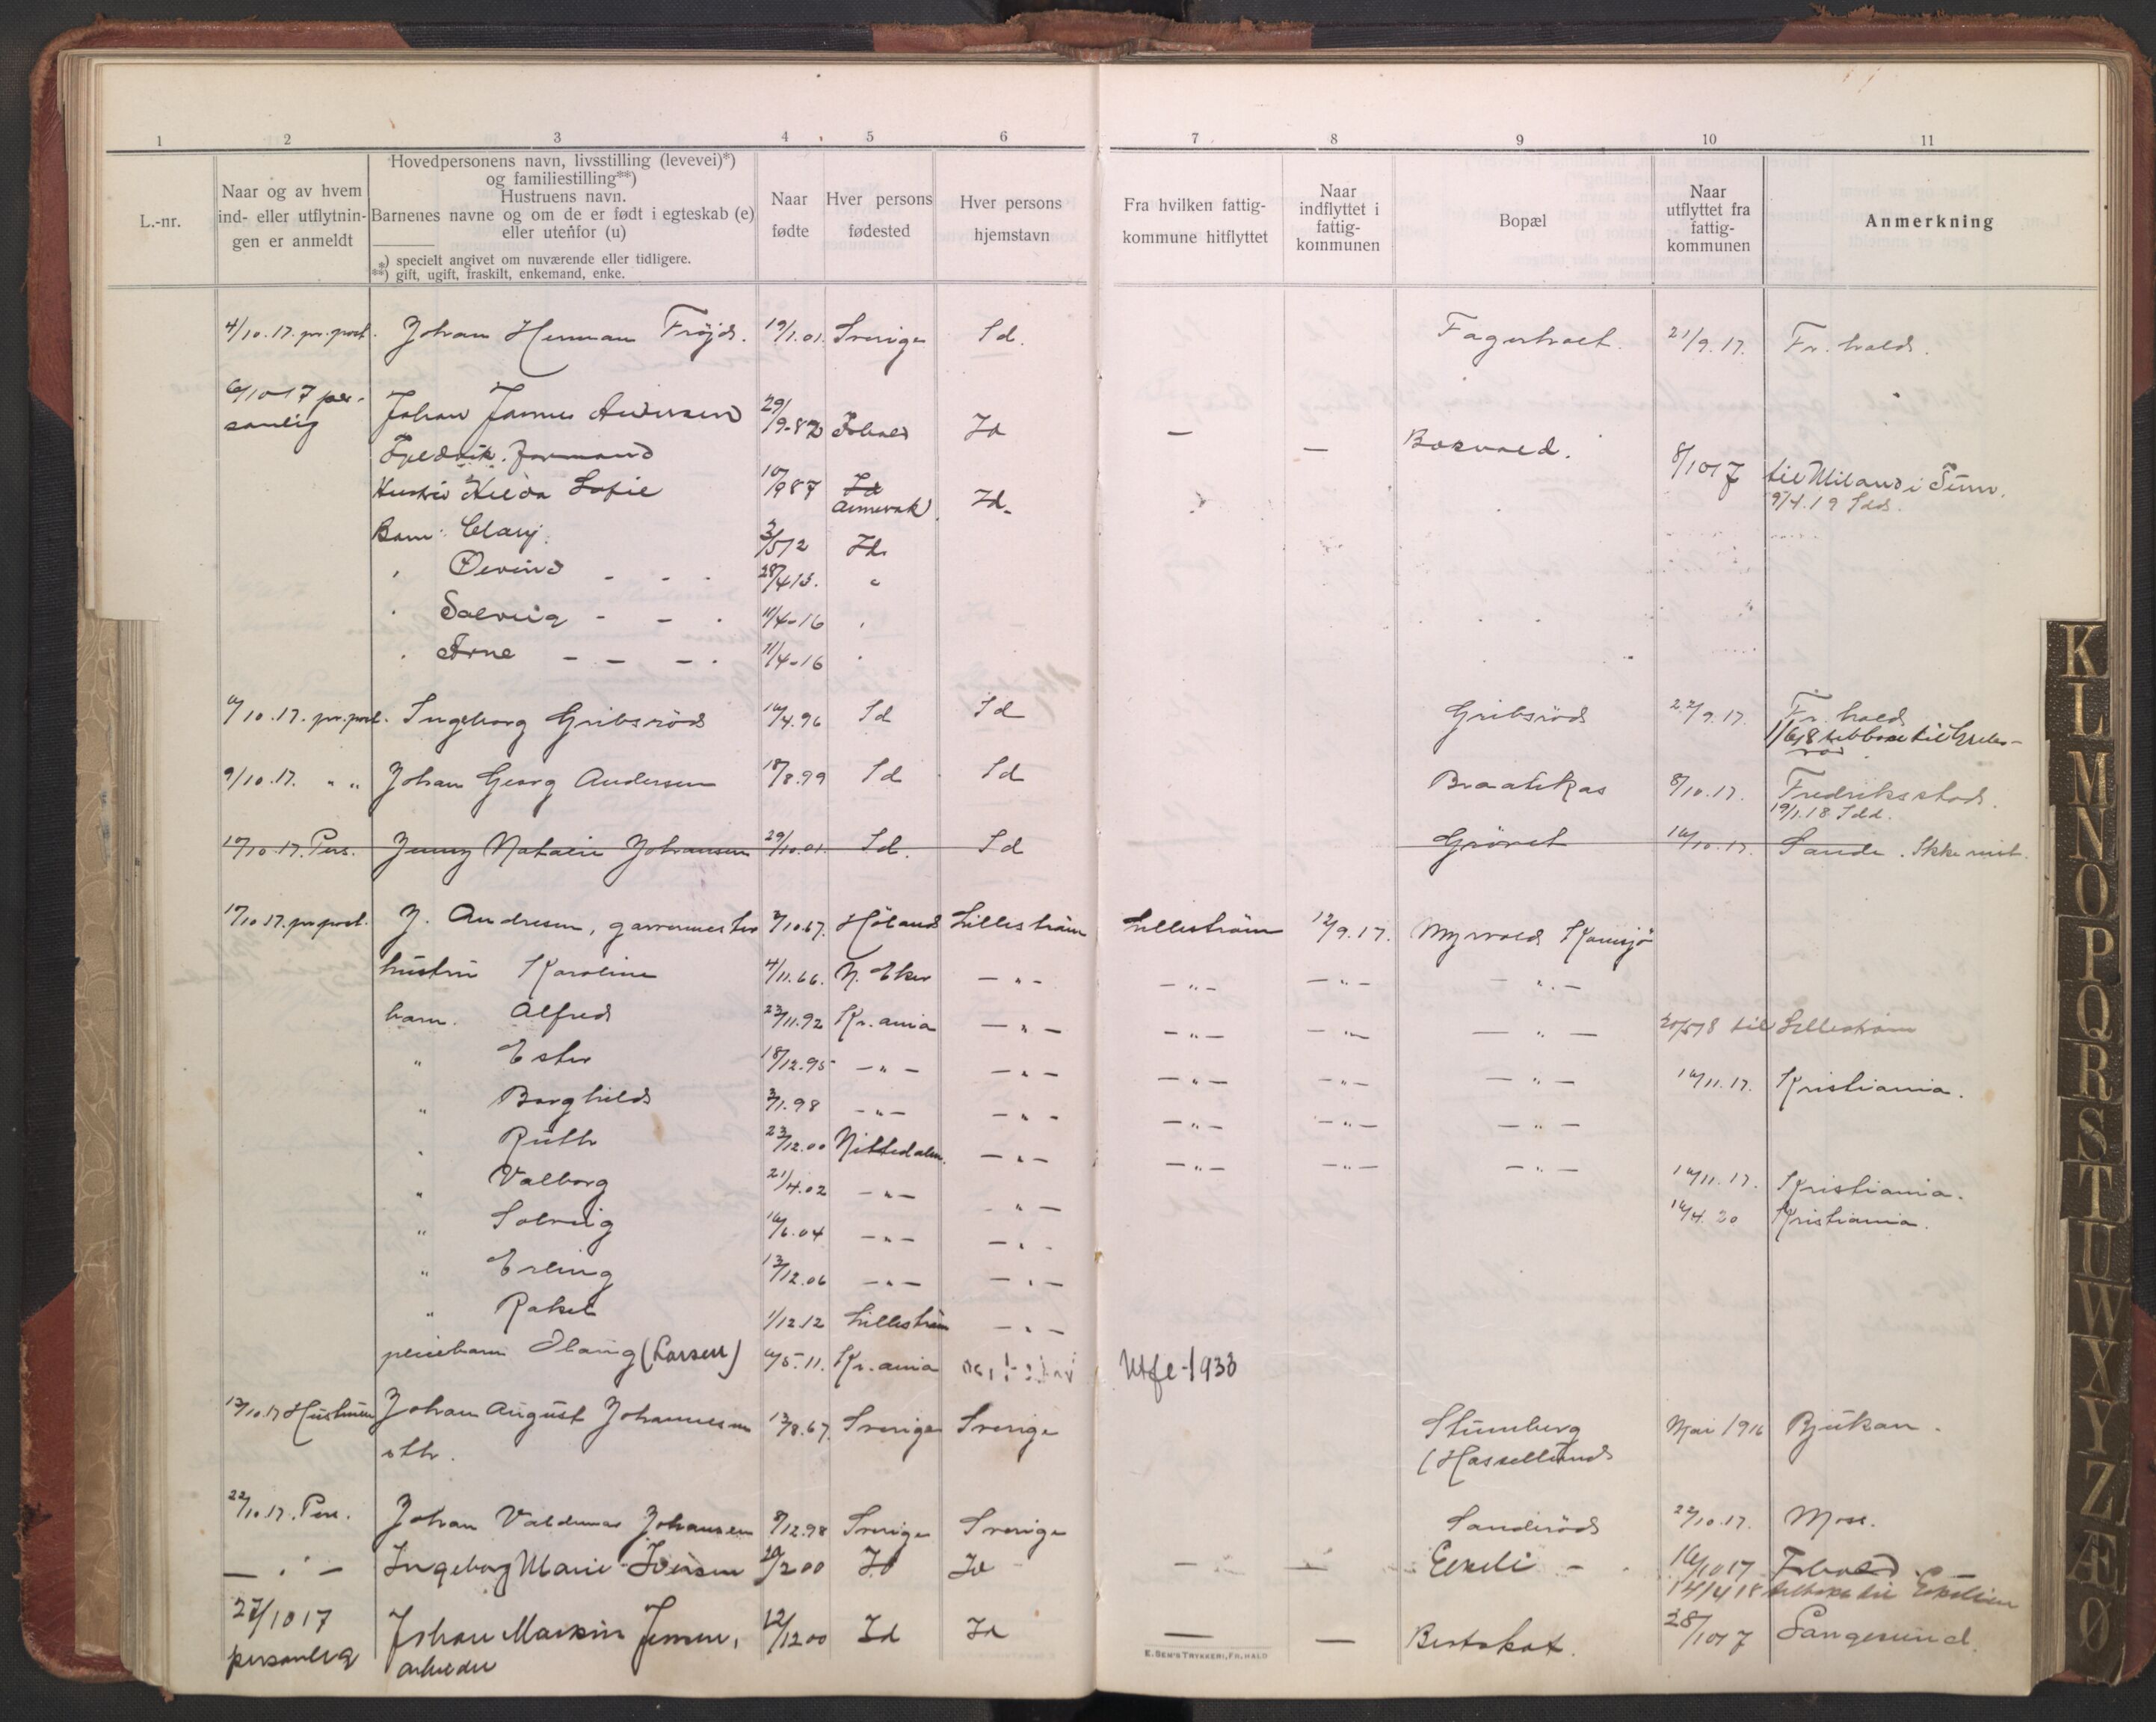 1 2 3 4 5 6 7 8 9 10 11
L.-nr.
Naar og av hvem
ind- eller utflytnin-
gen er anmeldt
Hovedpersonens navn, livsstilling (levevei)*)
og familiestilling**)
Hustruens navn.
Barnenes navne og om de er født i egteskab (e)
eller utenfor (u)
*) specielt angivet om nuværende eller tidligere.
**) gift, ugift, fraskilt, enkemand, enke.
Naar
fødte
Hver persons
fødested
Hver persons
hjemstavn
Fra hvilken fattig-
kommune hitflyttet
Naar
indflyttet i
fattig-
kommunen
Bopæl
Naar
utflyttet fra
fattig-
kommunen
Anmerkning
4/10.17. pr. post. Johan Herman Fröjd. 19/1.01. Sverige Id. 21/9.17. Fr. hald.
6/10-17 per-
sonlig Johan 29/9-82 Id —
Hustru Hilda Sofie 10/9 87 Id Id. 8/10 17 til Miland i Tinn.
9/4.19 Idd.
Barn: 3/5 12 Id
" Øeivind - - - 28/4 13. "
" Solveig - - - 11/4-16 "
" Arne - - - 11/4-16 "
pr. post. Ingeborg Gribsröd 16/4.96 Id Id Gribsröd 22/9.17. Fr. hald
9/10.17. " " Johan Georg Andersen 18/8.99 Id Id Braatekas 8/10.17. Fredriksstad.
19/1.18 Idd.
Pers. Jenny Natalie Johansen 29/10.01. Id. Id 16/10.17. Sande. Ikke reist.
17/10.17. pr post. J. Andresen, garvermester 7/10.67. Höland Lilleström Lilleström 12/9.17. Myrvold Kornsjö
hustru Karoline 4/11.66. N. Eker — " — — " — — " — — " —
barn. Alfred 23/11.92 Kr.ania — " — — " — — " — — " — 20/5 18 til Lilleström
" Ester 18/12.95 — " — — " — — " — — " — — " — 16/11.17. Kristiania.
" Borghild 3/1.98 — " — — " — — " — — " — — " —
" Ruth 23/12.00 Nittedalen. — " — — " — — " — — " —
" Valborg 21/4.02 — " — — " — 16/11.17. Kristiania.
" Solveig 16/6.04 — " — — " — 16/4.20 Kristiania.
" Erling 13/12.06 — " — — " —
" Rakel 1/12.12 Lilleström — " —
pleiebarn Olaug (Larsen) 6/5.11. Kr.ania 1933
Hustruen Johan August Johannesen 13/8.67. Sverige Sverige Stumberg Mai 1916 Rjukan.
sth. (Hasellund
22/10.17. Pers. Johan Valdemar Johansen 8/12.98 Sverige Sverige Sanderöd 22/10.17. Moss.
— " — Ingeborg Marie Iversen 20/2 00 Id Id — — Eekeli 16/10 17 F.hald.
14/4 18
27/10 17
personlig Johan Jensen, 12/12 00 Id Id — — 28/10 17 Langesund.
arbeider
E. SEM'S TRYKKERI, FR.HALD
K
L
M
N
O
P
Q
R
S
T
U
W
X
Y
Z
Æ
Ø